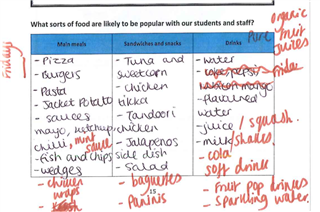 What sorts of food are likely to be popular with our students and staff?
Main meals
Sandwiches and snacks
Drinks
Fridays
- Pizza
- Burgers
- Pasta
- Jacket Potato
- sauces
mayo, ketchup,
chilli, mint
sauce
- fish and chips
- wedges
- chicken
wraps
- Tuna and
sweetcorn
- chicken
tikka
- Tandoori
chicken
- Jalapenos
side dish
- Salad
- baguettes
- Paninis
15
- water
- flavoured
water
- juice / squash.
- milk/shakes.
- cola
soft drink
- Fruit pop drinks
- Sparkling water.
Pure
organic
fruit
juices